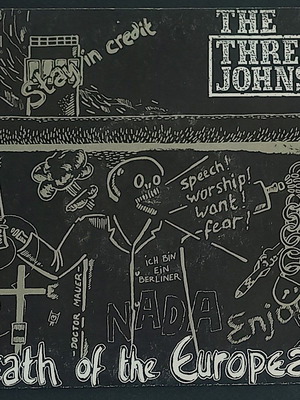 THE
THRE
JOHNS
Stay in credit
speech!
worship!
want!
fear!
ICH BIN
EIN
BERLINER
DOCTOR MAUER
NADA
Enjo
eath of the Europea